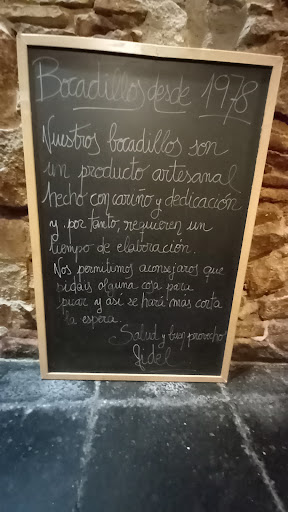 Bocadillos desde 1978
Nuestros bocadillos son
un producto artesanal
hecho con cariño y dedicación
y, por tanto, requieren un
tiempo de elaboración.
Nos permitimos aconsejaros que
pidáis alguna cosa para
picar y así se hará más corta
la espera.
Salud y buen provecho
Fidel